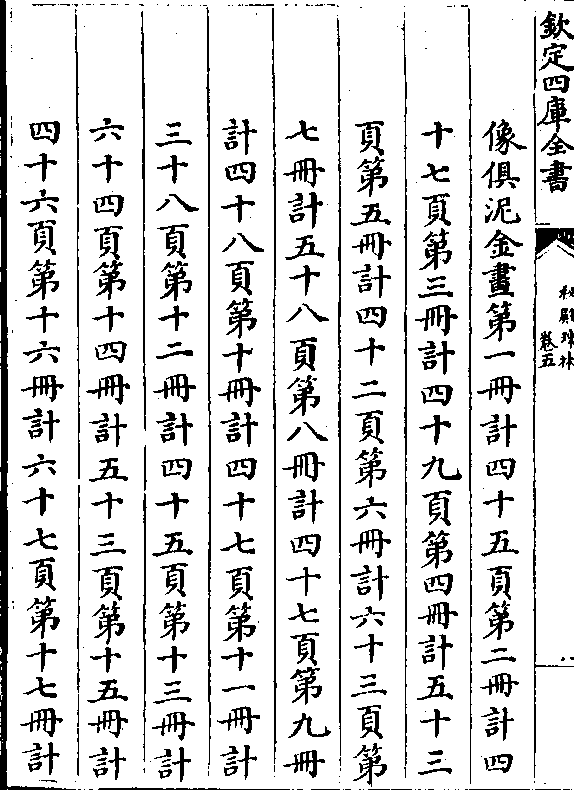 欽定四庫全書
秘殿珠林
卷五
像俱泥金畫第一冊計四十五頁第二冊計四
十七頁第三冊計四十九頁第四冊計五十三
頁第五冊計四十二頁第六冊計六十三頁第
七冊計五十八頁第八冊計四十七頁第九冊
計四十八頁第十冊計四十七頁第十一冊計
三十八頁第十二冊計四十五頁第十三冊計
六十四頁第十四冊計五十三頁第十五冊計
四十六頁第十六冊計六十七頁第十七冊計